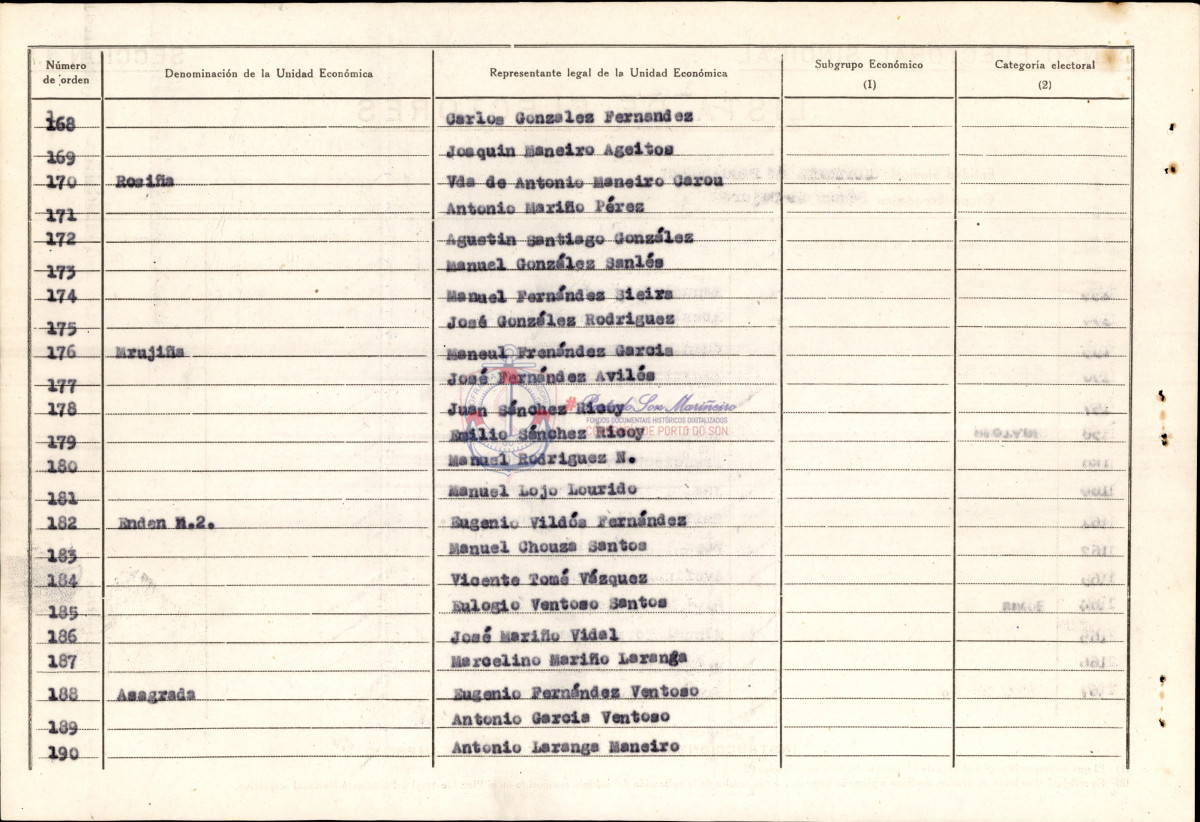 Número de orden Denominación de la Unidad Económica Representante legal de la Unidad Económica Subgrupo Económico (1) Categoría electoral (2)
168 Carlos Gonzalez Fernandez
169 Joaquin Maneiro Ageitos
170 Rosiña Vda de Antonio Maneiro Carou
171 Antonio Mariño Pérez
172 Agustin Santiago González
173 Manuel González Sanlés
174 Manuel Fernández Sieira
175 José González Rodriguez
176 Mrujiña Maneul Frenández Garcia
177 José Fernández Avilés
178 Juan Sánchez Ricoy
179 Emilio Sánchez Ricoy
180 Manuel Rodriguez N.
181 Manuel Lojo Lourido
182 Enden N.2. Eugenio Vildós Fernández
183 Manuel Chouza Santos
184 Vicente Tomé Vázquez
185 Eulogio Ventoso Santos
186 José Mariño Vidal
187 Marcelino Mariño Laranga
188 Asagrada Eugenio Fernández Ventoso
189 Antonio Garcia Ventoso
190 Antonio Laranga Maneiro
#Porto do Son Mariñeiro
FONDOS DOCUMENTAIS HISTÓRICOS DIGITALIZADOS
DE PORTO DO SON